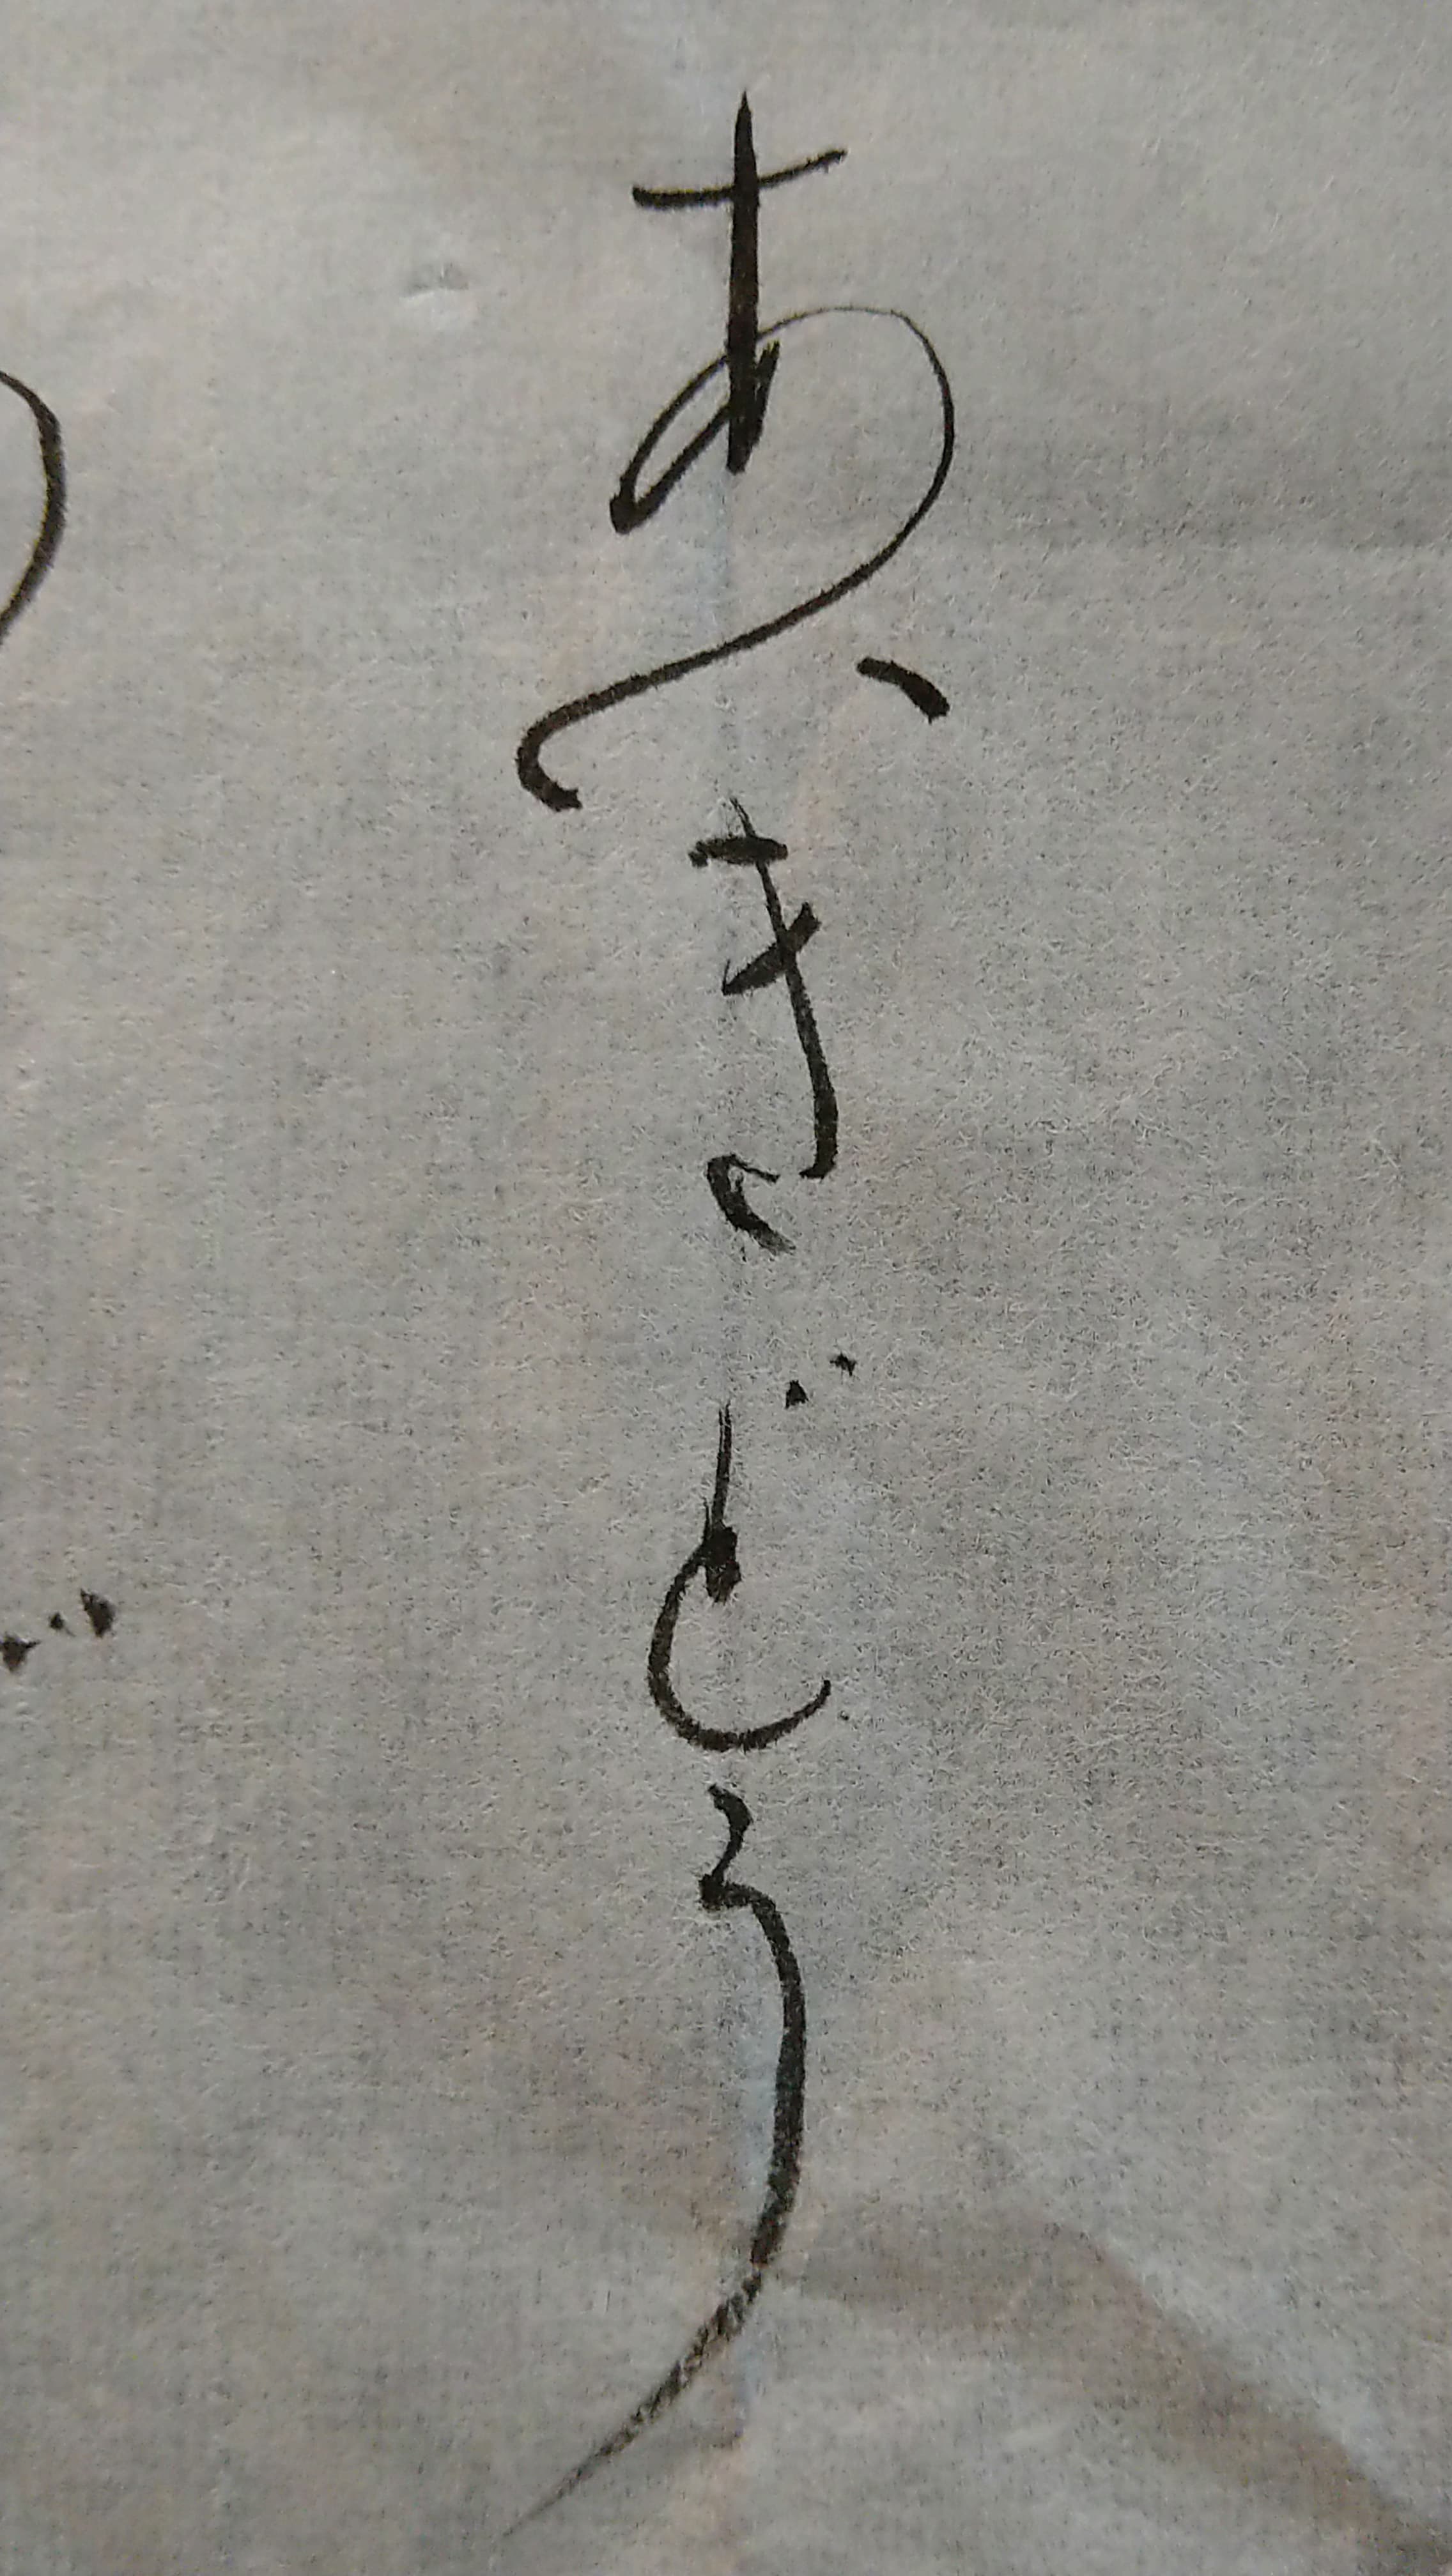 あいきどう